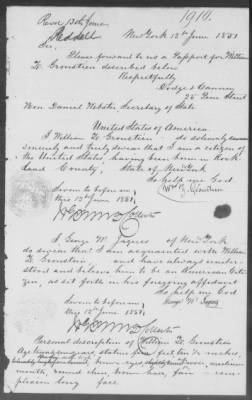 1910.
Recd 13th June
New York 12th June 1851
Sir,
Please forward to us a Passport for William
H. Cronstien described below
Respectfully
Dodge &
25 Pine Street
Hon. Daniel Webster, Secretary of State
United States of America
I William H Cronstien do solemnly
sincerely and truly swear that I am a citizen of
the United States, having been born in Rock
land County, State of New York
So help me God
Sworn to before me
this 12th June 1851,
I George W. Jaques of New York
do swear that I am acquainted with William
H. Cronstien, and have always under-
stood and believe him to be an American Citi-
zen, as set forth in his foregoing affidavit
So help me God
George W. Jaques
Sworn to before me
this 12th June 1851,
Personal description of William H. Cronstien
Age stature five feet ten ½ inches,
brown eyes, nose, medium
mouth, round chin, brown hair, fair com-
plexion long face.